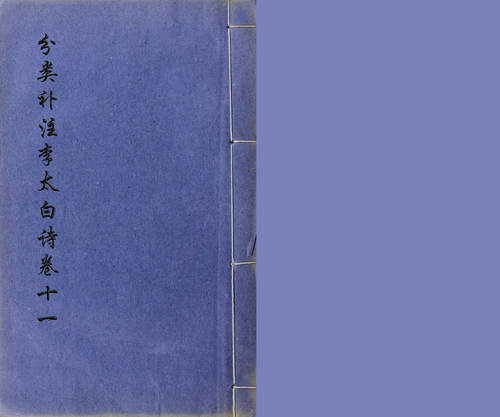 分类补注李太白诗卷十一